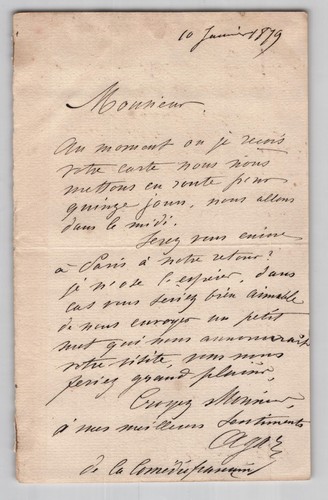 10 Janvier 1879
Monsieur.
Au moment ou je reçois
votre carte nous nous
mettons en route pour
quinze jours, nous allons
dans le midi.
Serez vous encore
à Paris à notre retour?
je n'ose l'espérer, dans
cas vous seriez bien aimable
de nous envoyer un petit
mot qui nous annoncerait
votre visite, vous nous
feriez grand plaisir,
Croyez Monsieur
à mes meilleurs sentiments
Agar
de la Comédie française